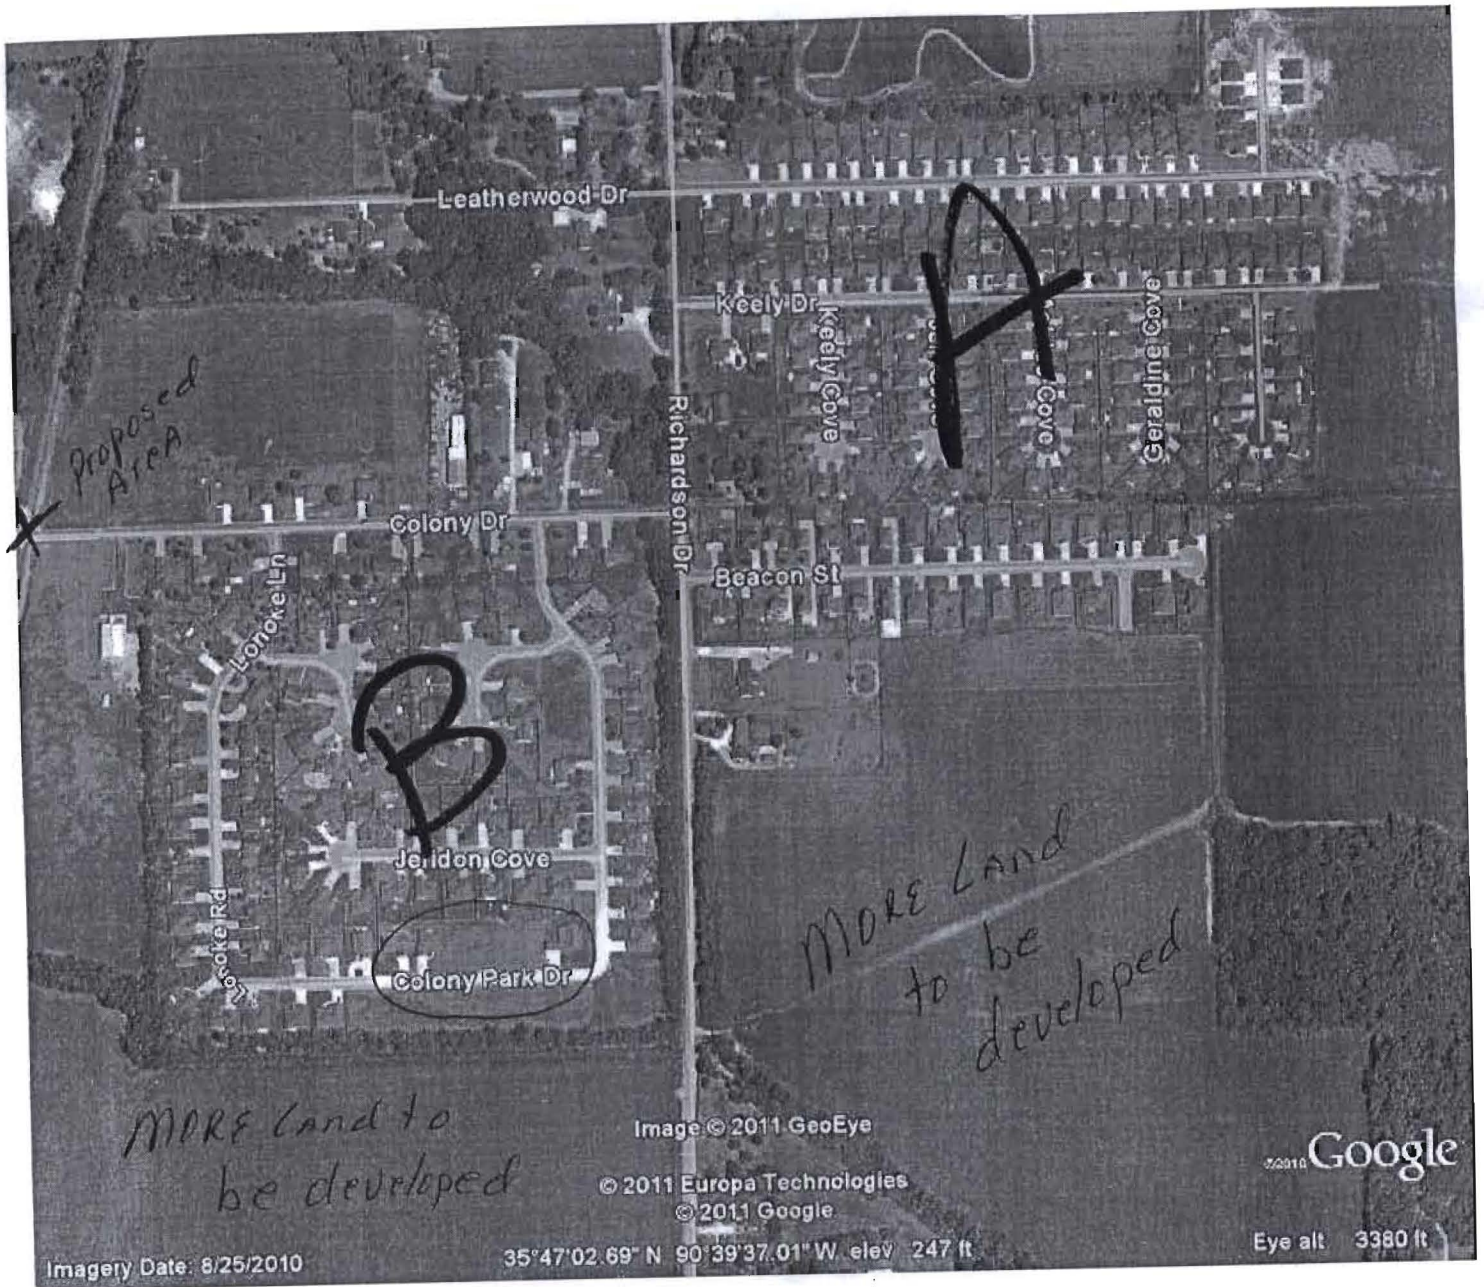 Leatherwood Dr
A
Keely Dr
Keely Cove
Cove
Geraldine Cove
Proposed
AreA
Richardson Dr
X
Colony Dr
Beacon St
Lonoke Ln
B
Jeridon Cove
Colony Park Dr
MORE Land
to be
developed
MORE Land to
be developed
Image © 2011 GeoEye
© 2011 Europa Technologies
© 2011 Google
©2010 Google
Imagery Date: 8/25/2010
35°47'02.69" N 90°39'37.01" W elev 247 ft
Eye alt 3380 ft